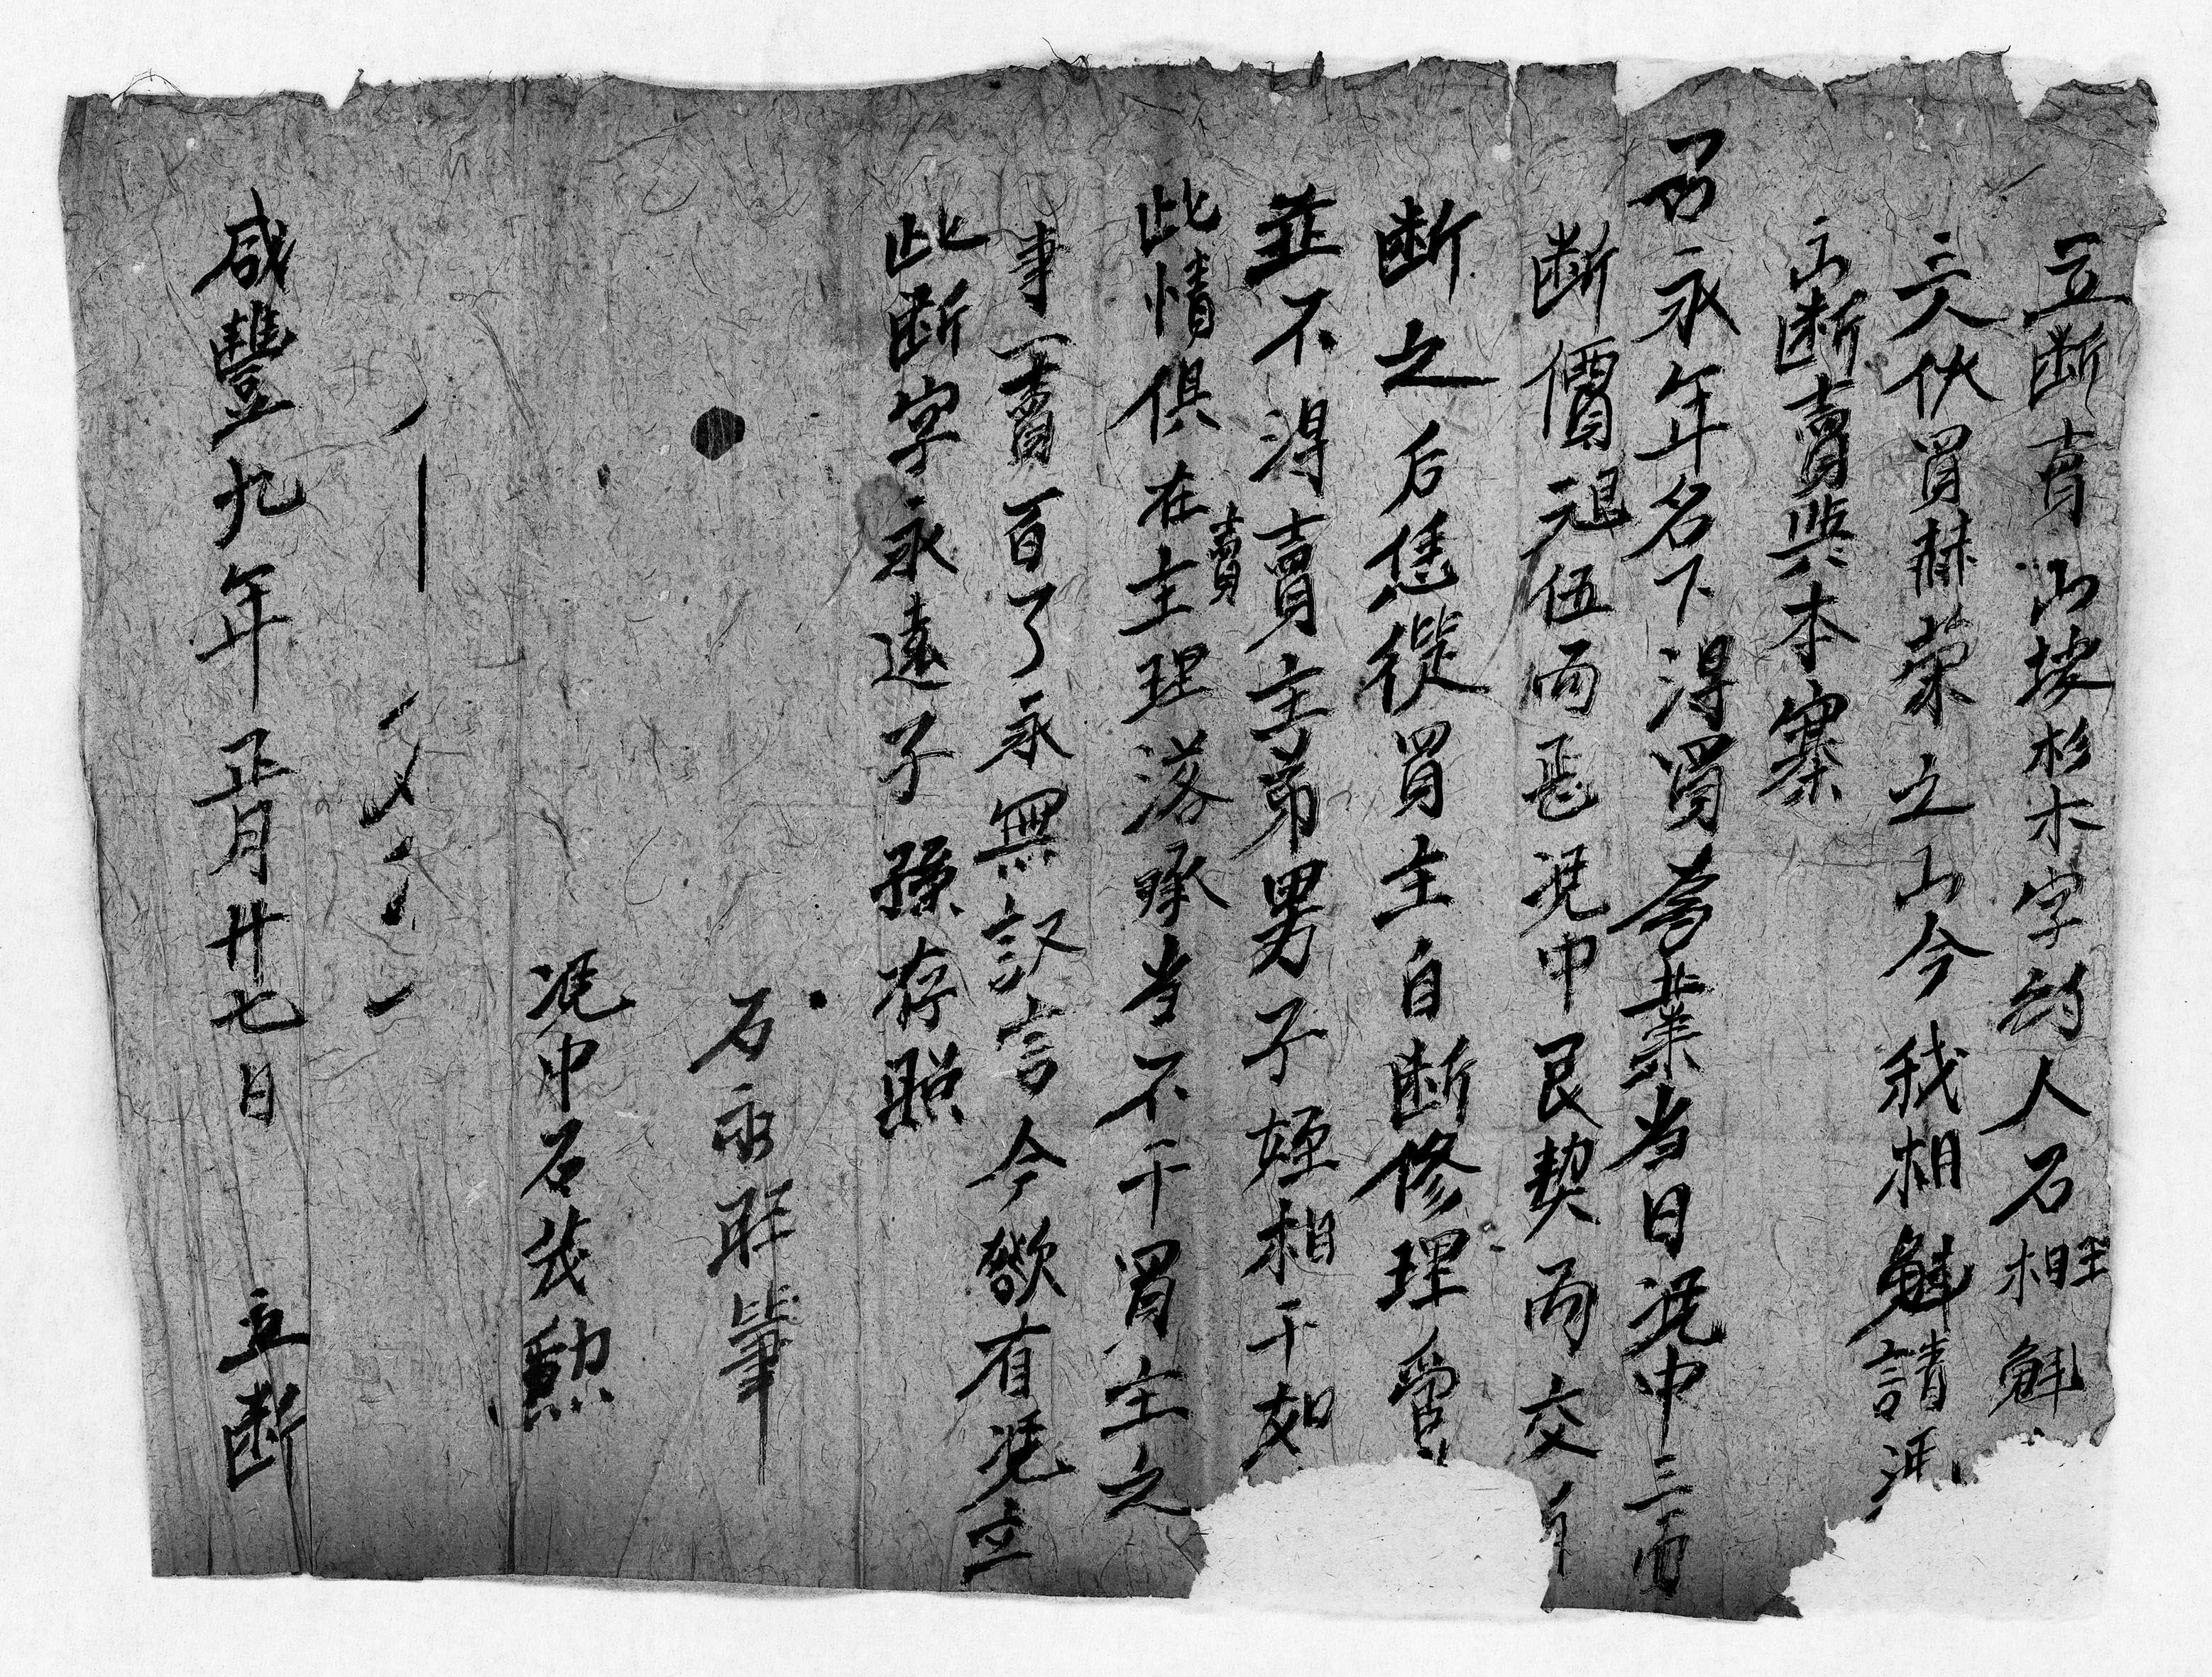 立断賣山坡杉木字約人石相魁
三人伙買赫荣之山今我相魁請凴
断賣與本寨
石永年名下淂買為業当日凴中三面
断價艮伍両足凴中艮契両交
断之后恁從買主自断修理管
並不淂賣主弟男子姪相干如
此情俱在賣主理落承当不干買主之
事一賣百了永無訳言今欲有凴立
此断字永遠子孫存照
石永 筆
凴中石茂勲
咸豐九年正月廿七日 立断